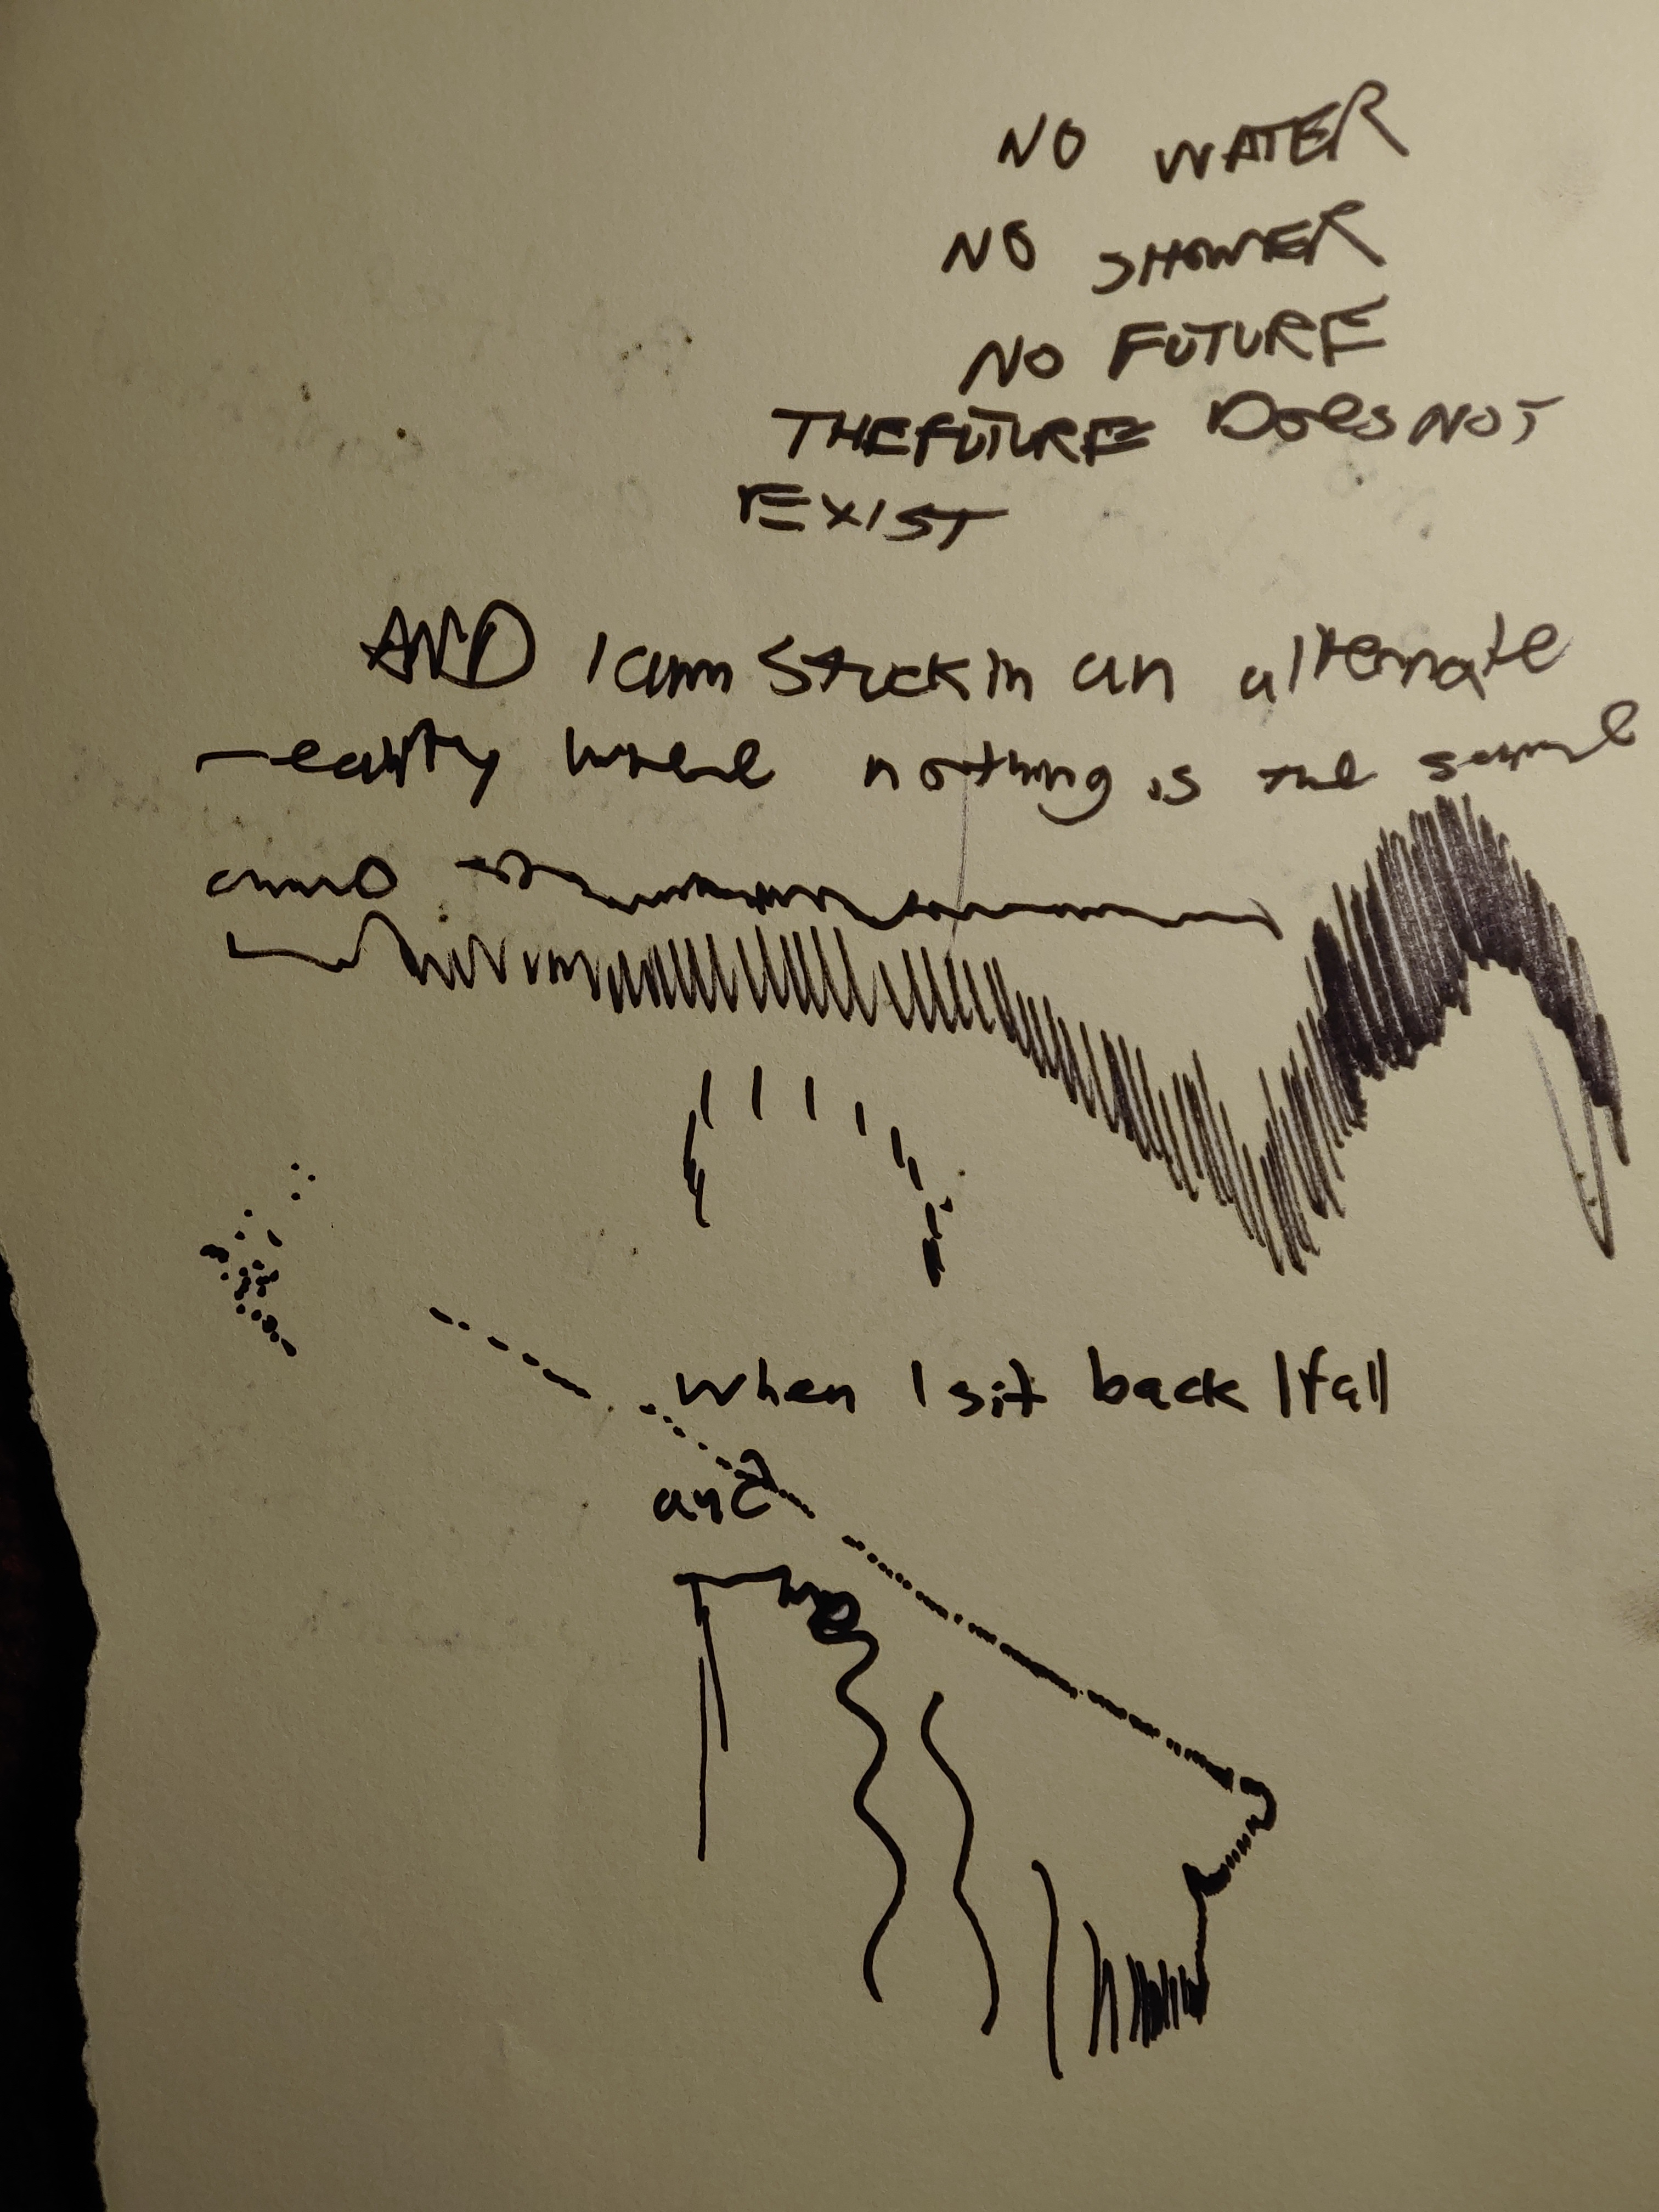 NO WATER
NO SHOWER
NO FUTURE
THE FUTURE Does NOT
EXIST
AND I am Stuck in an alternate
reality where nothing is the same
and
when I sit back I fall
and